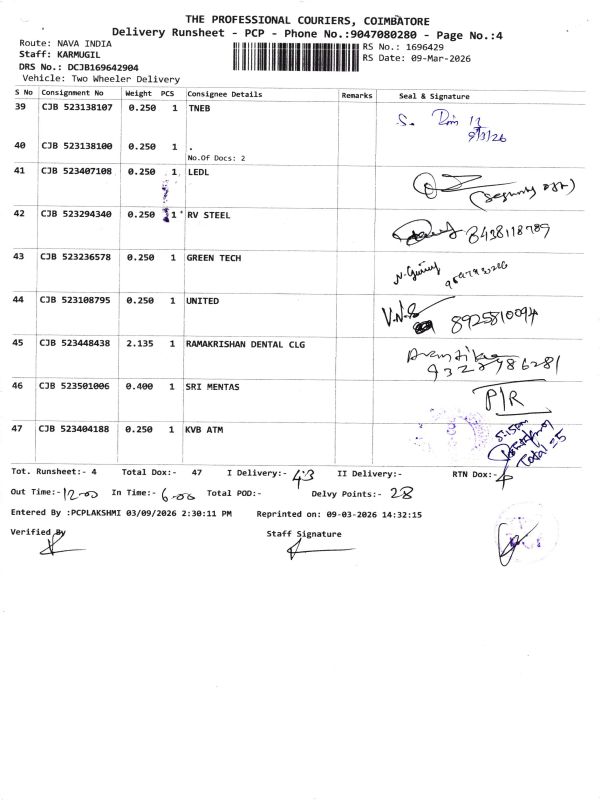 THE PROFESSIONAL COURIERS, COIMBATORE
Delivery Runsheet - PCP - Phone No.:9047080280 - Page No.:4
Route: NAVA INDIA
Staff: KARMUGIL
DRS No.: DCJB169642904
Vehicle: Two Wheeler Delivery
RS No.: 1696429
RS Date: 09-Mar-2026
S No Consignment No Weight PCS Consignee Details Remarks Seal & Signature
39 CJB 523138107 0.250 1 TNEB
9/3/26
40 CJB 523138100 0.250 1 .
No.Of Docs: 2
41 CJB 523407108 0.250 1 LEDL
42 CJB 523294340 0.250 1 RV STEEL
8438118789
43 CJB 523236578 0.250 1 GREEN TECH
44 CJB 523108795 0.250 1 UNITED
V.N.S
8925810094
45 CJB 523448438 2.135 1 RAMAKRISHAN DENTAL CLG
46 CJB 523501006 0.400 1 SRI MENTAS
P/R
47 CJB 523404188 0.250 1 KVB ATM
5:15pm
Total = 5
Tot. Runsheet:- 4 Total Dox:- 47 I Delivery:- 43 II Delivery:- RTN Dox:- 4
Out Time:- 12-00 In Time:- 6-00 Total POD:- Delvy Points:- 28
Entered By :PCPLAKSHMI 03/09/2026 2:30:11 PM Reprinted on: 09-03-2026 14:32:15
Verified By Staff Signature